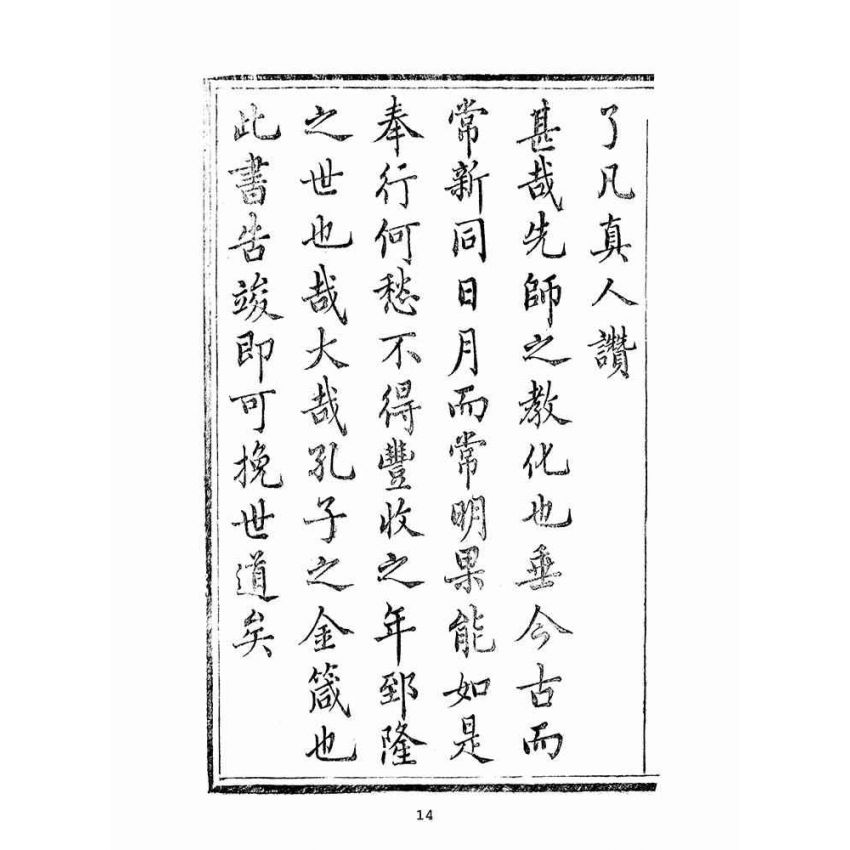 了凡真人讚
甚哉先師之教化也垂今古而
常新同日月而常明果能如是
奉行何愁不得豐收之年郅隆
之世也哉大哉孔子之金箴也
此書告竣即可挽世道矣
14